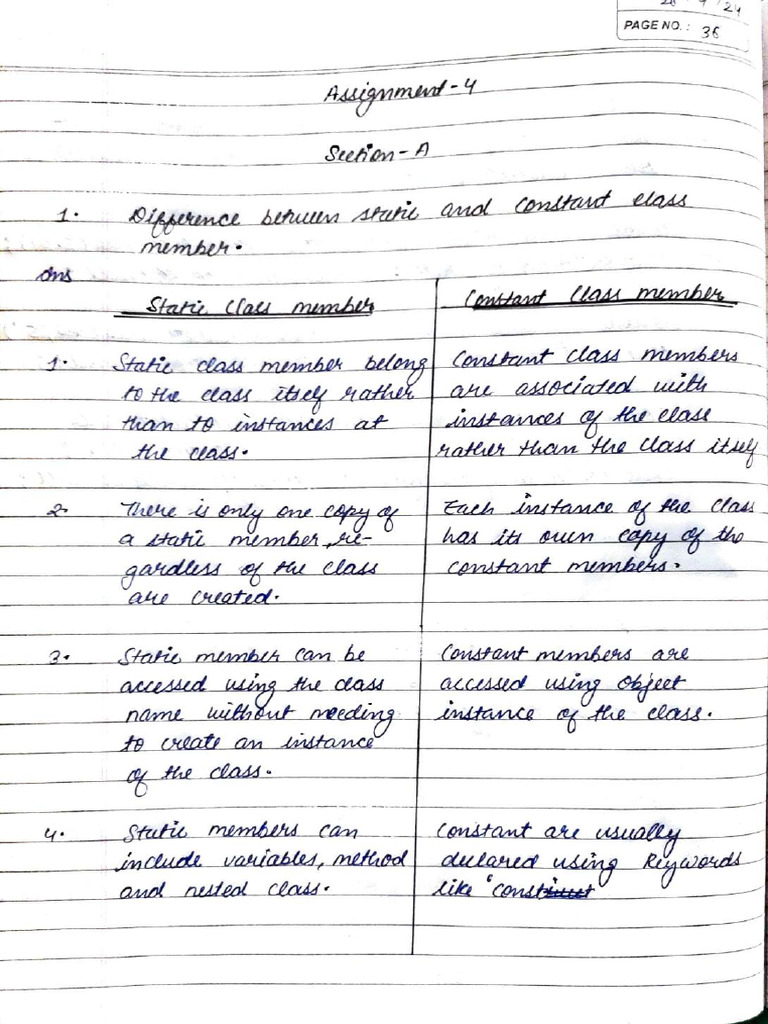 28 / 9 / 24
PAGE NO.: 36
Assignment-4
Section-A
1. Difference between static and constant class
member.
ans
Static Class member
Constant Class member
1. Static class member belong
to the class itself rather
than to instances at
the class.
Constant class members
are associated with
instances of the class
rather than the class itself
2. There is only one copy of
a static member, re-
gardless of the class
are created.
Each instance of the class
has its own copy of the
constant members.
3. Static member can be
accessed using the class
name without needing
to create an instance
of the class.
Constant members are
accessed using object
instance of the class.
4. Static members can
include variables, method
and nested class.
Constant are usually
declared using keywords
like 'const